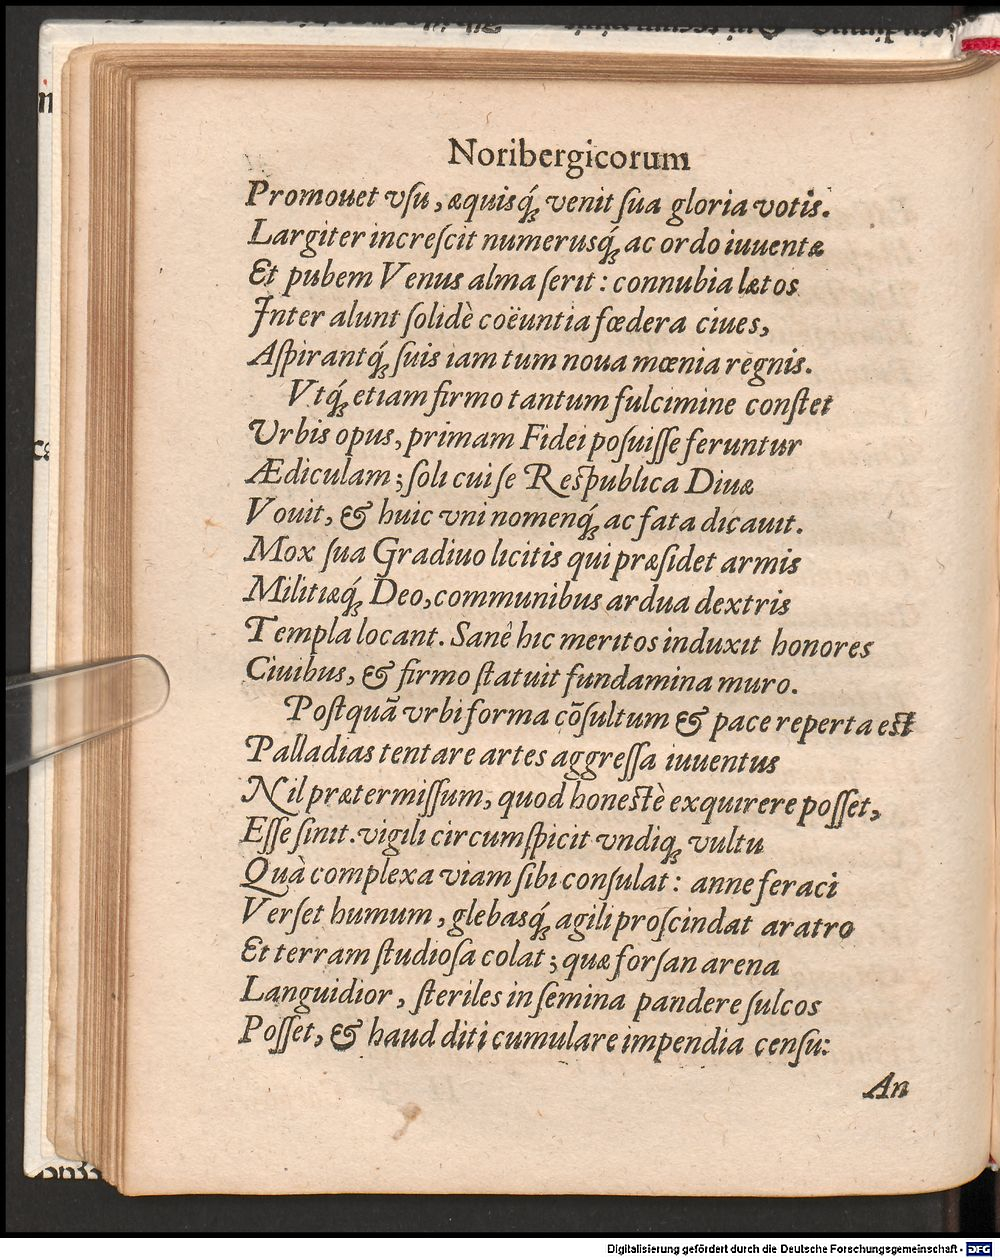 Noribergicorum
Promouet vſu, æquisq́; venit ſua gloria votis.
Largiter increſcit numerusq́; ac ordo iuuentæ
Et pubem Venus alma ſerit: connubia lætos
Inter alunt ſolidè coëuntia fœdera ciues,
Aſpirantq́; ſuis iam tum noua mœnia regnis.
Vtq́; etiam firmo tantum fulcimine conſtet
Vrbis opus, primam Fidei poſuiſſe feruntur
Ædiculam; ſoli cui ſe Reſpublica Diuæ
Vouit, & huic vni nomenq́; ac fata dicauit.
Mox ſua Gradiuo licitis qui præſidet armis
Militiæq́; Deo, communibus ardua dextris
Templa locant. Sanê hic meritos induxit honores
Ciuibus, & firmo ſtatuit fundamina muro.
Poſtquã vrbi forma cõſultum & pace reperta eſt
Palladias tentare artes aggreſſa iuuentus
Nil prætermiſſum, quod honeſtè exquirere poſſet,
Eſſe ſinit. vigili circumſpicit vndiq; vultu
Quà complexa viam ſibi conſulat: anne feraci
Verſet humum, glebasq́; agili proſcindat aratro
Et terram ſtudioſa colat; quæ forſan arena
Languidior, ſteriles in ſemina pandere ſulcos
Poſſet, & haud diti cumulare impendia cenſu:
An
Digitalisierung gefördert durch die Deutsche Forschungsgemeinschaft - DFG